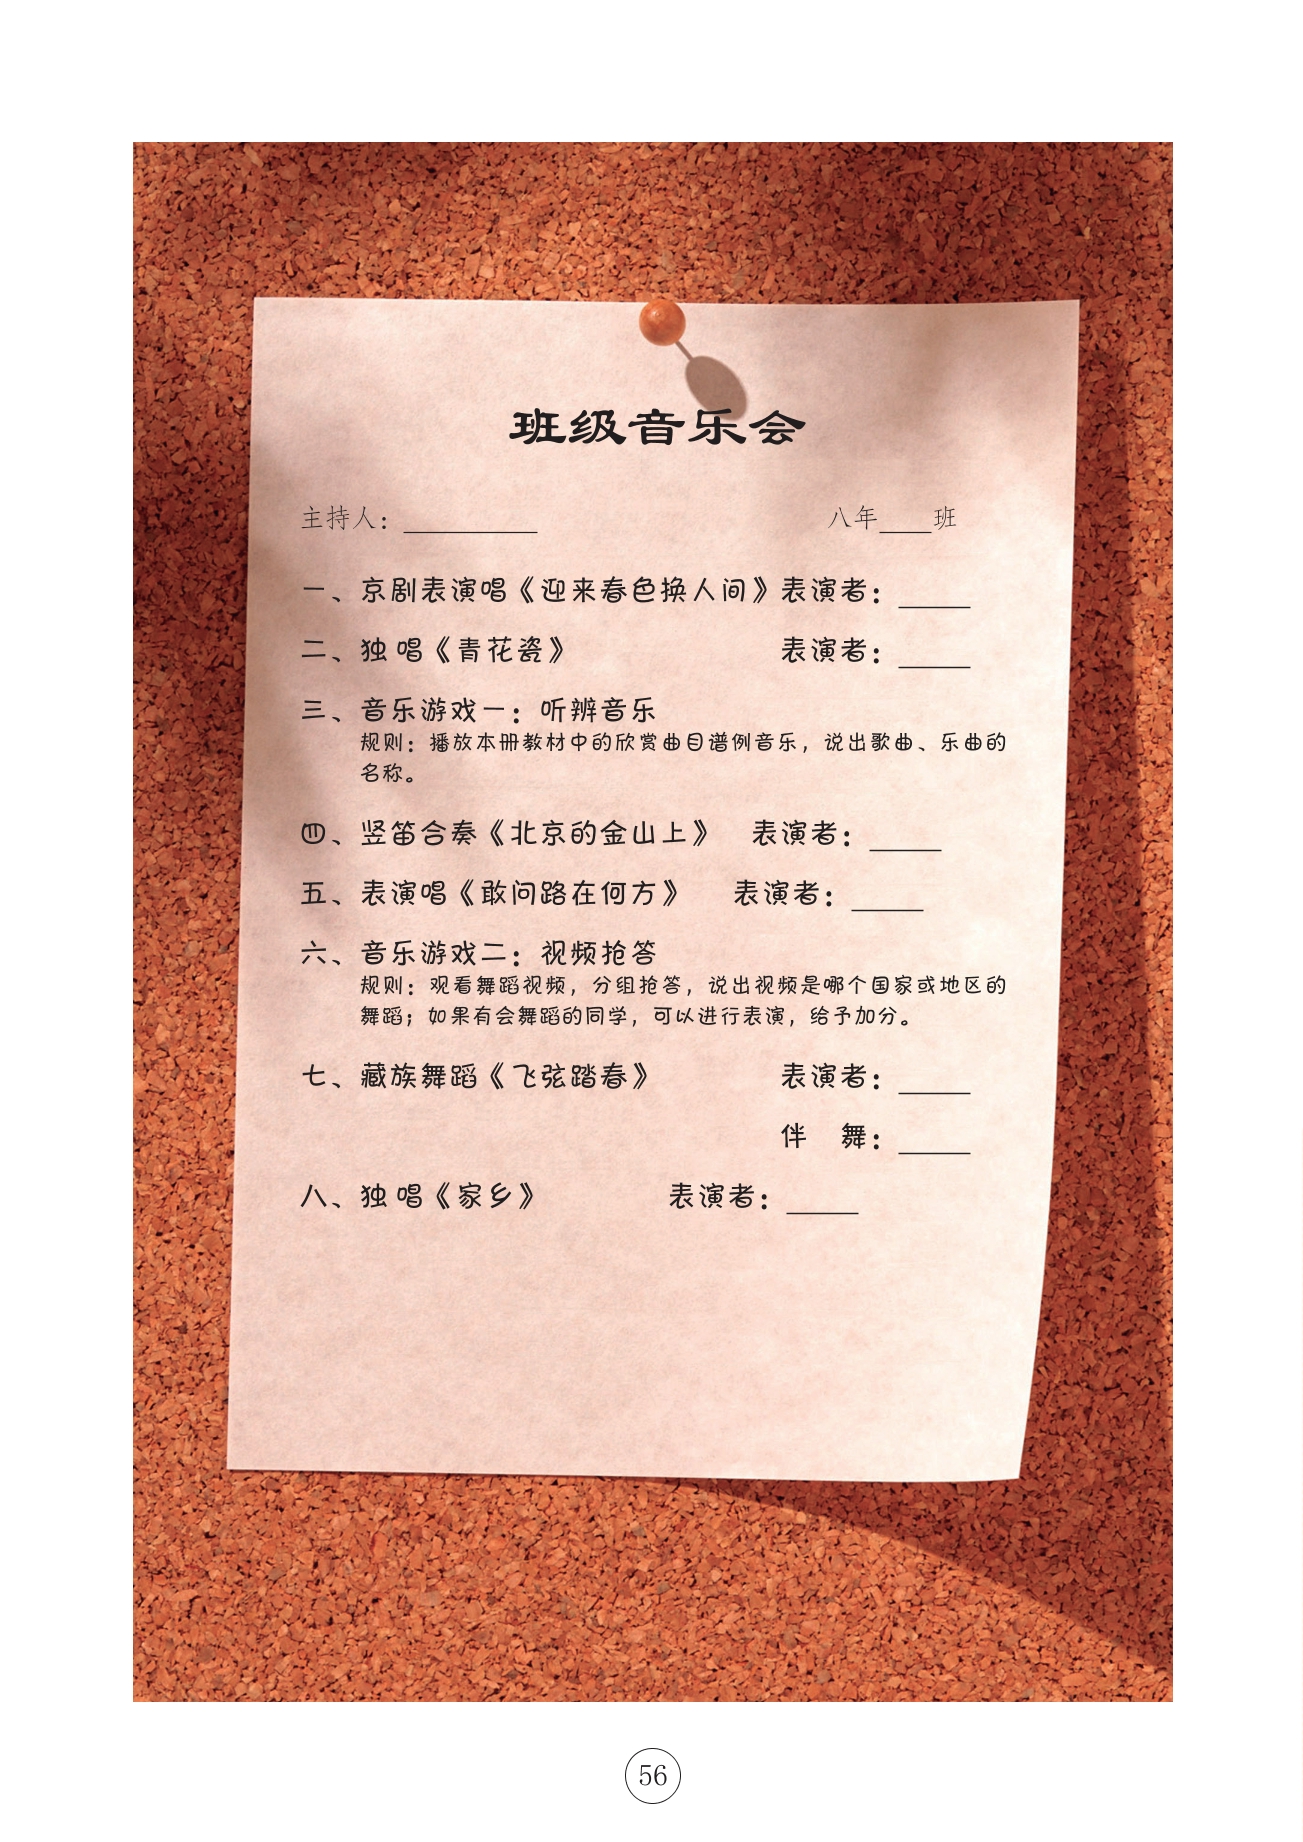 班级音乐会
主持人：__________ 八年____班
一、京剧表演唱《迎来春色换人间》表演者：_____
二、独唱《青花瓷》 表演者：_____
三、音乐游戏一：听辨音乐
规则：播放本册教材中的欣赏曲目谱例音乐，说出歌曲、乐曲的
名称。
四、竖笛合奏《北京的金山上》 表演者：_____
五、表演唱《敢问路在何方》 表演者：_____
六、音乐游戏二：视频抢答
规则：观看舞蹈视频，分组抢答，说出视频是哪个国家或地区的
舞蹈；如果有会舞蹈的同学，可以进行表演，给予加分。
七、藏族舞蹈《飞弦踏春》 表演者：_____
伴 舞：_____
八、独唱《家乡》 表演者：_____
56